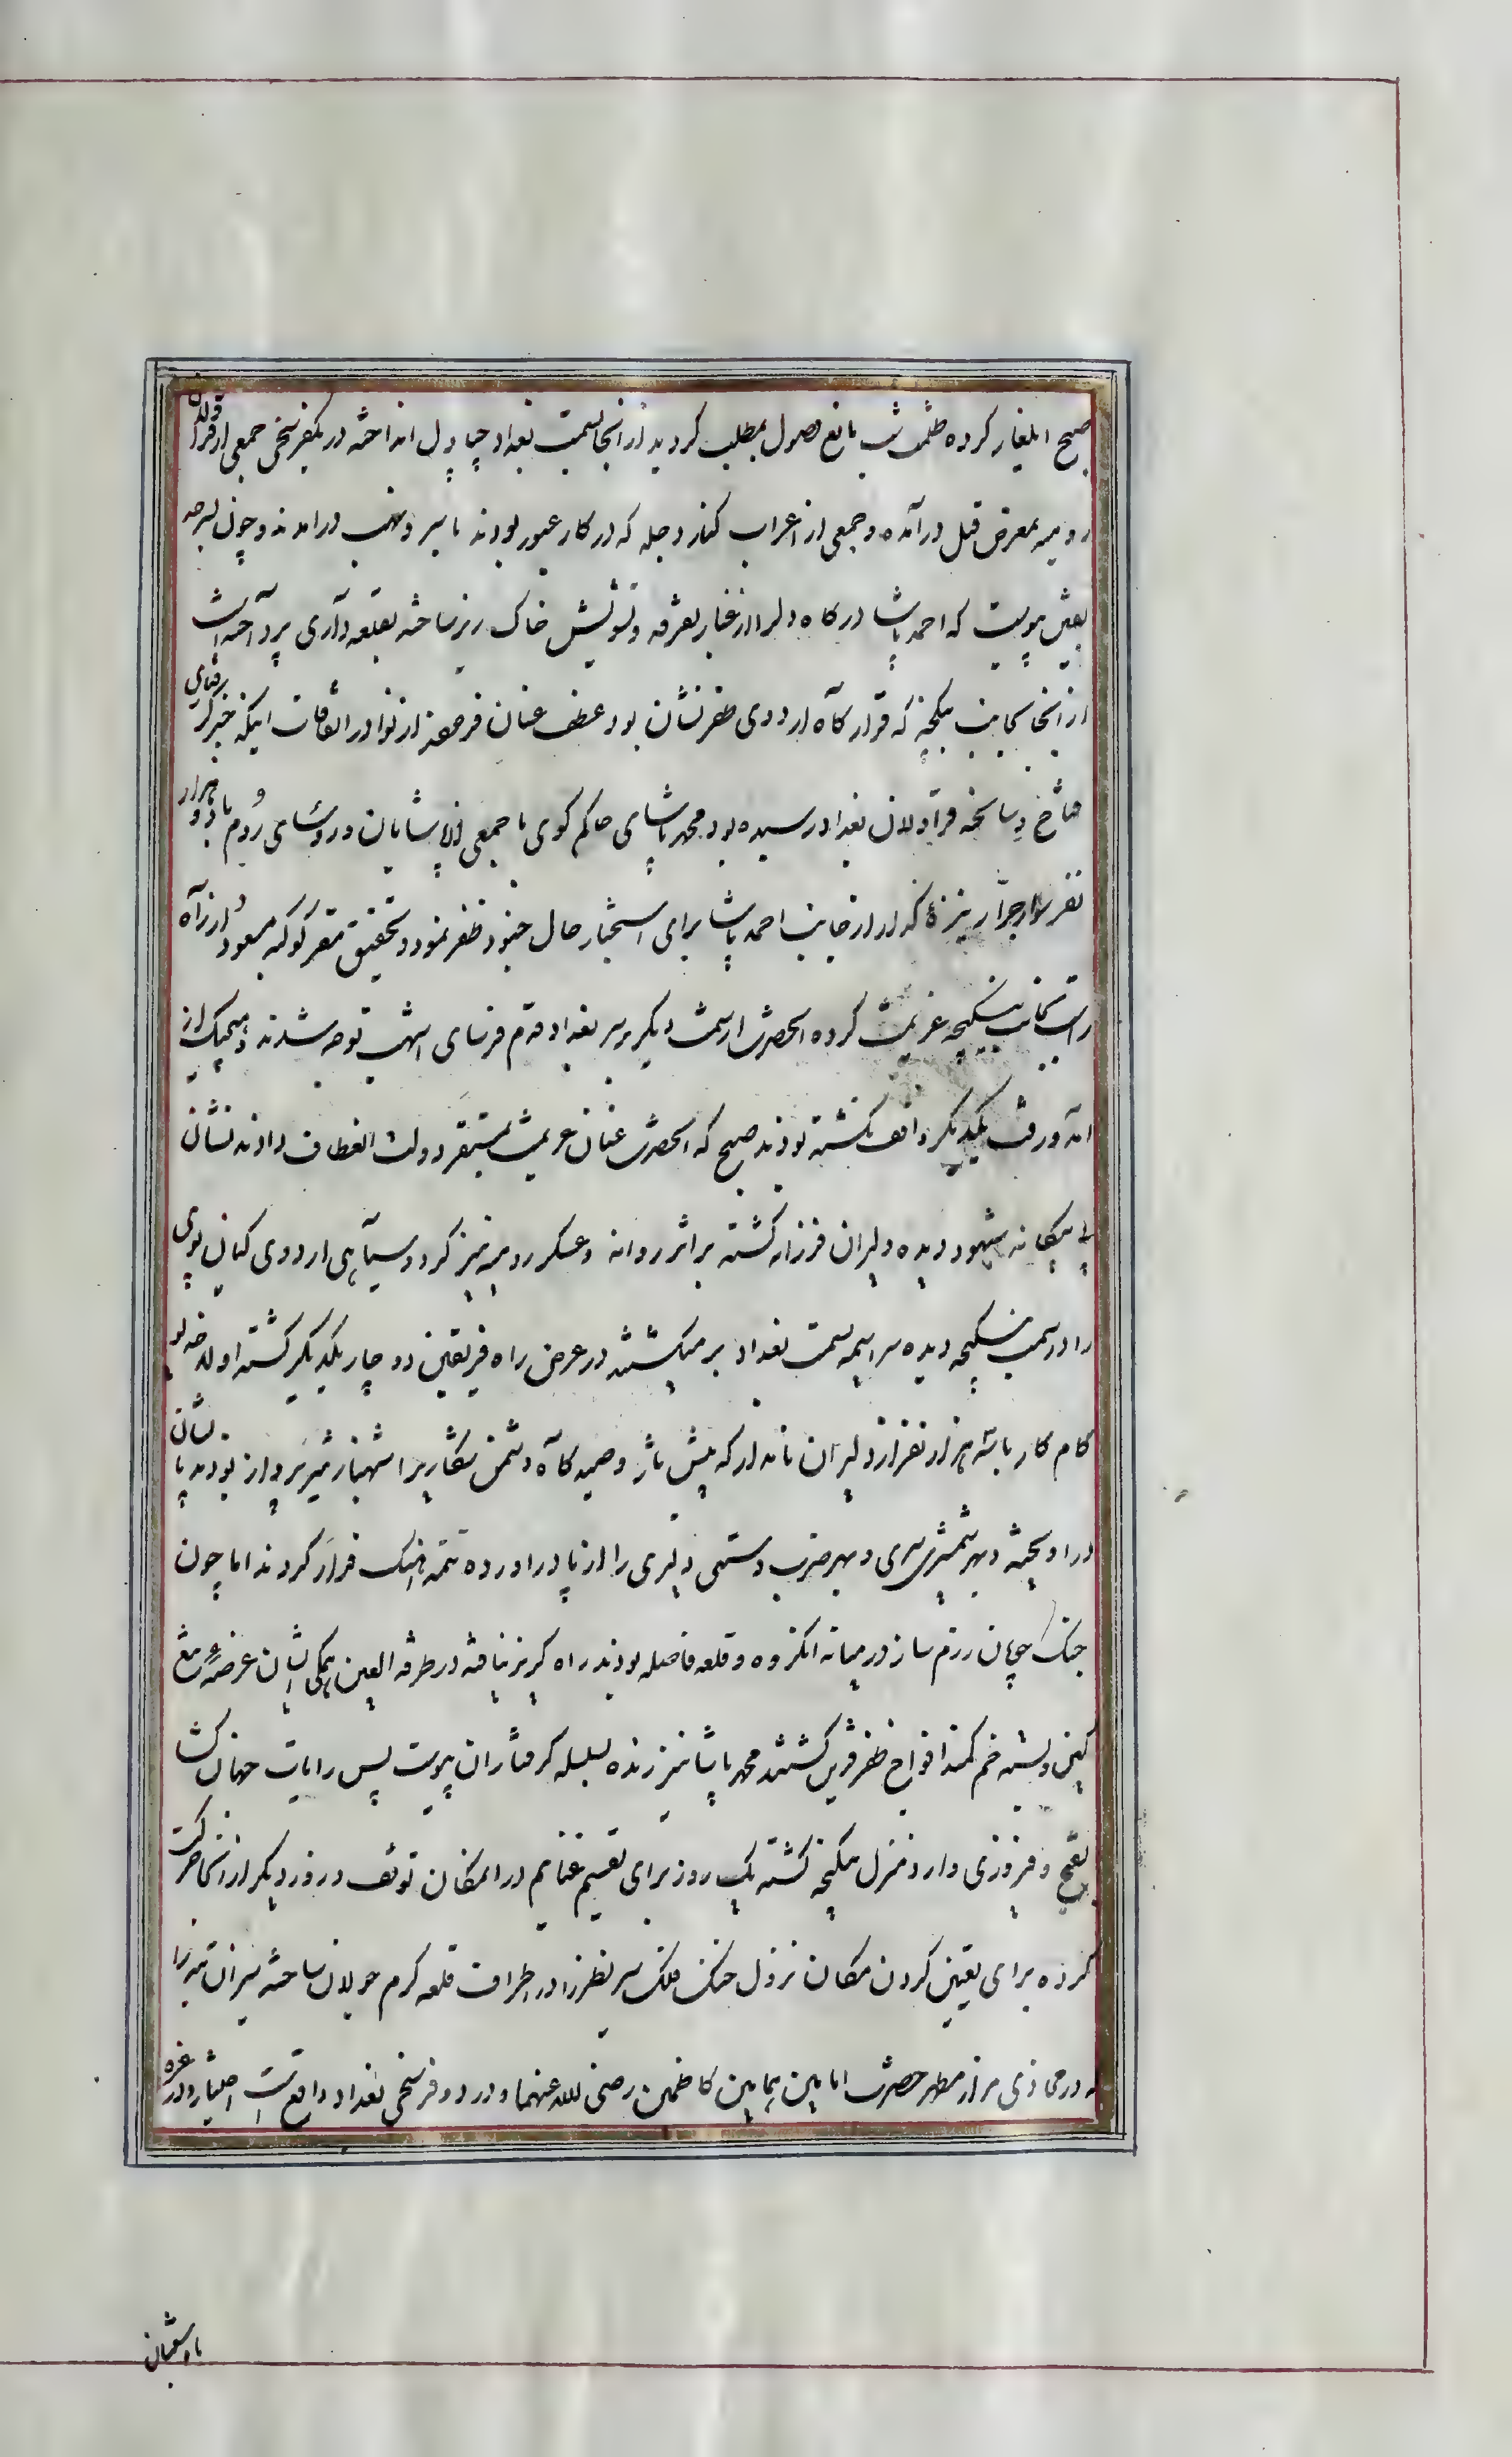 صبح ایلغار کرده ظلمت شب مانع وصول بمطلب کردید از آنجا بسمت بغداد چپاول انداخته در یکفرسخی جمعی از قراولان
رومیه بمعرض قتل درآمده و جمعی از اعراب کنار دجله که در کار عبور بودند باسر و نهب درامدند و چون بسرحد
یقین پیوست که احمد پاشا در کاه دلرا از غبار تفرقه و تشویش خاک ریز ساخته بقلعه داری پرداخته است
از آنجا بجانب ینکیجه که قرارکاه اردوی ظفرنشان بود عطف عنان فرمودند از نوادر اتفاقات اینکه خبر کرفتاری
فتاح و سانحه قراولان بغداد رسیده بود محمد پاشای حاکم کوی با جمعی از پاشایان و روسای روم با دو هزار
نفر سوار جرار نیزه کذار از جانب احمد پاشا برای استخبار حال جنود ظفر نمود و تحقیق مقر کوکبه مسعود از راه
راست بجانب ینکیجه عزیمت کرده آنحضرت از سمت دیکر بر سر بغداد قدم فرسای اشهب توجه شدند و هیچیک از
آمد و رفت یکدیکر واقف نکشته بودند صبح که آنحضرت عنان عزیمت بمستقر دولت انعطاف دادند نشان
پی بیکانه مشهود دیده دلیران فرزانه کشته بر اثر روانه و عسکر رومیه نیز کرد و سیاهی اردوی کیهان پوی
را در سمت ینکیجه دیده سراسیمه بسمت بغداد بر میکشتند در عرض راه فریقین دو چار یکدیکر کشته اولا خدیو
کام کار با سه هزار نفر از دلیران نامدار که پیش تاز و صیدکاه دشمن شکار برا شهباز تیزپرواز بودند با ایشان
در اویخته و بهر شمشیری سری و بهر ضرب دستی دلیری را از پا دراورده تتمه آهنک فرار کردند اما چون
جنک جویان رزم ساز در میانه آنکروه و قلعه فاصله بودند راه کریز نیافته در طرفه العین همکی ایشان عرضه تیغ
کین و بسته خم کمند افواج ظفر قرین کشتند محمد پاشا نیز زنده بسلسله کرفتاران پیوست پس رایات جهان کشا
بفتح و فیروزی وارد منزل ینکیجه کشته یک روز برای تقسیم غنایم در المکان توقف و روز دیکر از آنجا حرکت
کرده برای تعیین کردن مکان نزول خنک فلک سیر نظر را در اطراف قلعه کرم جولان ساخته سیران تپه را
که در محاذی مزار مطهر حضرت امامین همامین کاظمین رضی الله عنهما و در دو فرسخی بغداد واقع است اختیار و در غره
ماه شعبان